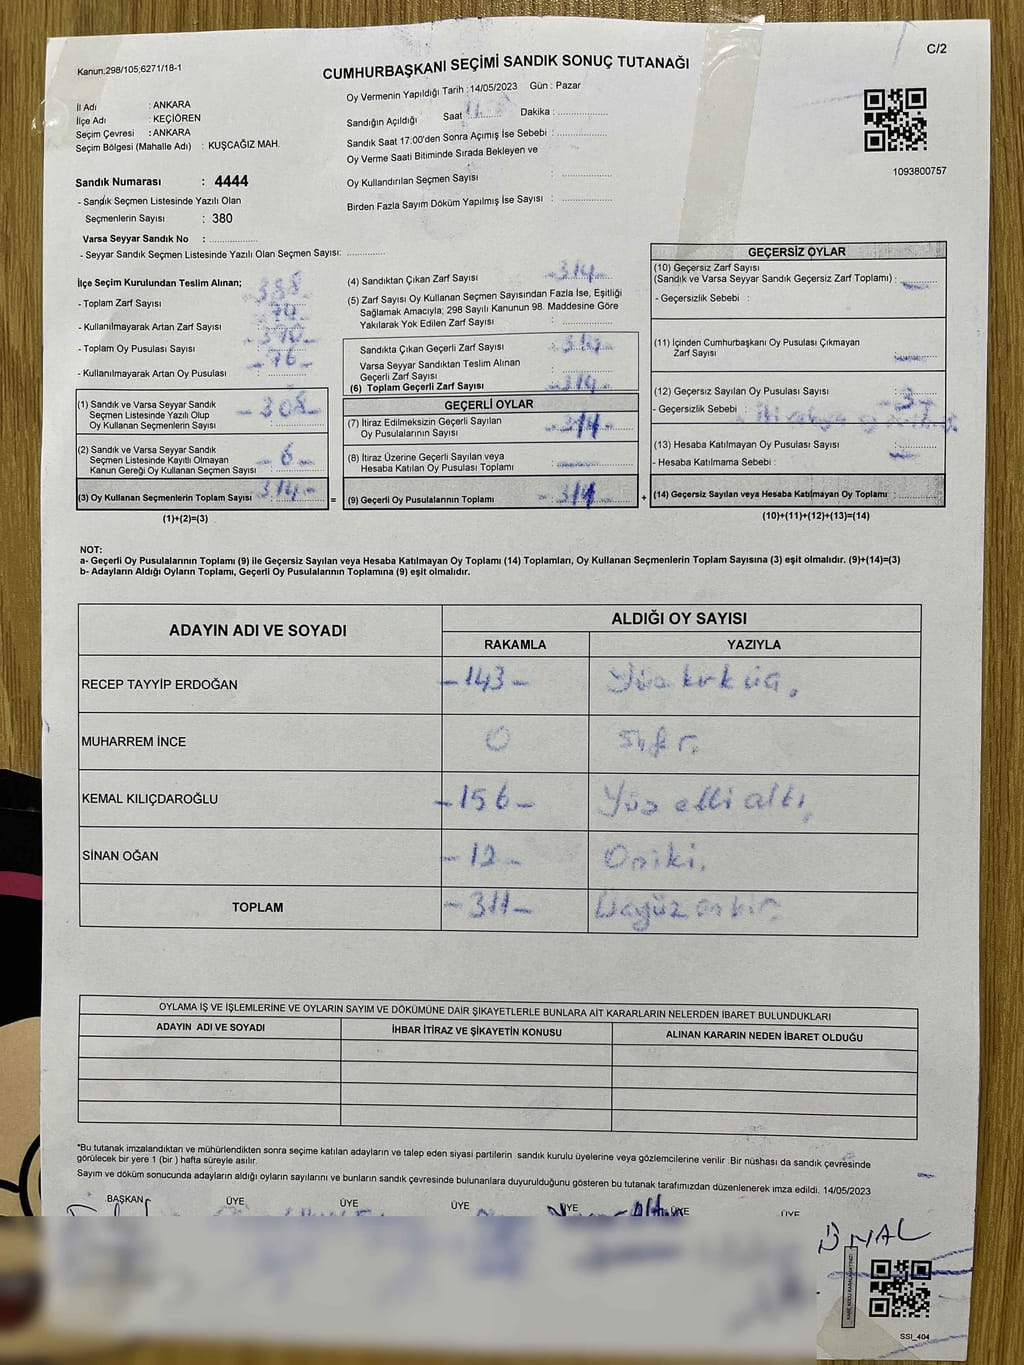 C/2
Kanun;298/105;6271/18-1
CUMHURBAŞKANI SEÇİMİ SANDIK SONUÇ TUTANAĞI
İl Adı : ANKARA
İlçe Adı : KEÇİÖREN
Seçim Çevresi : ANKARA
Seçim Bölgesi (Mahalle Adı) : KUŞCAĞIZ MAH.
Oy Vermenin Yapıldığı Tarih :14/05/2023 Gün : Pazar
Sandığın Açıldığı Saat Dakika :
Sandık Saat 17:00'den Sonra Açımış İse Sebebi :
Oy Verme Saati Bitiminde Sırada Bekleyen ve
Oy Kullandırılan Seçmen Sayısı :
Birden Fazla Sayım Döküm Yapılmış İse Sayısı :
1093800757
Sandık Numarası : 4444
- Sandık Seçmen Listesinde Yazılı Olan
Seçmenlerin Sayısı : 380
Varsa Seyyar Sandık No :
- Seyyar Sandık Seçmen Listesinde Yazılı Olan Seçmen Sayısı:
İlçe Seçim Kurulundan Teslim Alınan;
- Toplam Zarf Sayısı :
- Kullanılmayarak Artan Zarf Sayısı :
- Toplam Oy Pusulası Sayısı :
- Kullanılmayarak Artan Oy Pusulası : -76-
(1) Sandık ve Varsa Seyyar Sandık
Seçmen Listesinde Yazılı Olup
Oy Kullanan Seçmenlerin Sayısı : -308-
(2) Sandık ve Varsa Seyyar Sandık
Seçmen Listesinde Kayıtlı Olmayan
Kanun Gereği Oy Kullanan Seçmen Sayısı : -6-
(3) Oy Kullanan Seçmenlerin Toplam Sayısı : 314-
(1)+(2)=(3)
(4) Sandıktan Çıkan Zarf Sayısı : -314-
(5) Zarf Sayısı Oy Kullanan Seçmen Sayısından Fazla İse, Eşitliği
Sağlamak Amacıyla; 298 Sayılı Kanunun 98. Maddesine Göre
Yakılarak Yok Edilen Zarf Sayısı :
Sandıkta Çıkan Geçerli Zarf Sayısı : -314-
Varsa Seyyar Sandıktan Teslim Alınan
Geçerli Zarf Sayısı :
(6) Toplam Geçerli Zarf Sayısı : -314-
GEÇERLİ OYLAR
(7) İtiraz Edilmeksizin Geçerli Sayılan
Oy Pusulalarının Sayısı : -314-
(8) İtiraz Üzerine Geçerli Sayılan veya
Hesaba Katılan Oy Pusulası Toplamı :
= (9) Geçerli Oy Pusulalarının Toplamı : -314-
GEÇERSİZ OYLAR
(10) Geçersiz Zarf Sayısı
(Sandık ve Varsa Seyyar Sandık Geçersiz Zarf Toplamı) :
- Geçersizlik Sebebi :
(11) İçinden Cumhurbaşkanı Oy Pusulası Çıkmayan
Zarf Sayısı :
(12) Geçersiz Sayılan Oy Pusulası Sayısı : -3-
- Geçersizlik Sebebi :
(13) Hesaba Katılmayan Oy Pusulası Sayısı :
- Hesaba Katılmama Sebebi :
+ (14) Geçersiz Sayılan veya Hesaba Katılmayan Oy Toplamı :
(10)+(11)+(12)+(13)=(14)
NOT:
a- Geçerli Oy Pusulalarının Toplamı (9) ile Geçersiz Sayılan veya Hesaba Katılmayan Oy Toplamı (14) Toplamları, Oy Kullanan Seçmenlerin Toplam Sayısına (3) eşit olmalıdır. (9)+(14)=(3)
b- Adayların Aldığı Oyların Toplamı, Geçerli Oy Pusulalarının Toplamına (9) eşit olmalıdır.
ADAYIN ADI VE SOYADI ALDIĞI OY SAYISI
RAKAMLA YAZIYLA
RECEP TAYYİP ERDOĞAN -143- Yüz kırk üç.
MUHARREM İNCE 0 Sıfır.
KEMAL KILIÇDAROĞLU -156- Yüz elli altı,
SİNAN OĞAN -12- Oniki.
TOPLAM -311- Üçyüz on bir.
OYLAMA İŞ VE İŞLEMLERİNE VE OYLARIN SAYIM VE DÖKÜMÜNE DAİR ŞİKAYETLERLE BUNLARA AİT KARARLARIN NELERDEN İBARET BULUNDUKLARI
ADAYIN ADI VE SOYADI İHBAR İTİRAZ VE ŞİKAYETİN KONUSU ALINAN KARARIN NEDEN İBARET OLDUĞU
*Bu tutanak imzalandıktan ve mühürlendikten sonra seçime katılan adayların ve talep eden siyasi partilerin sandık kurulu üyelerine veya gözlemcilerine verilir .Bir nüshası da sandık çevresinde
görülecek bir yere 1 (bir ) hafta süreyle asılır.
Sayım ve döküm sonucunda adayların aldığı oyların sayılarını ve bunların sandık çevresinde bulunanlara duyurulduğunu gösteren bu tutanak tarafımızdan düzenlenerek imza edildi. 14/05/2023
BAŞKAN ÜYE ÜYE ÜYE ÜYE ÜYE ÜYE
SSI_404